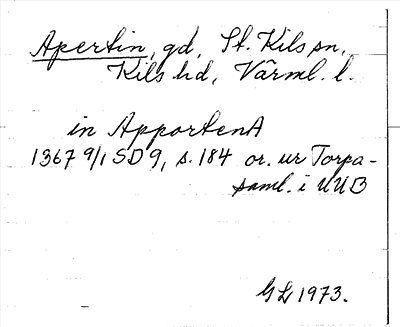 Apertin, gd, St. Kils sn,
Kils hd, Värml. l.
in ApportenA
1367 9/1 SD 9, s. 184 or. ur Torpa-
saml. i UUB
GL 1973.